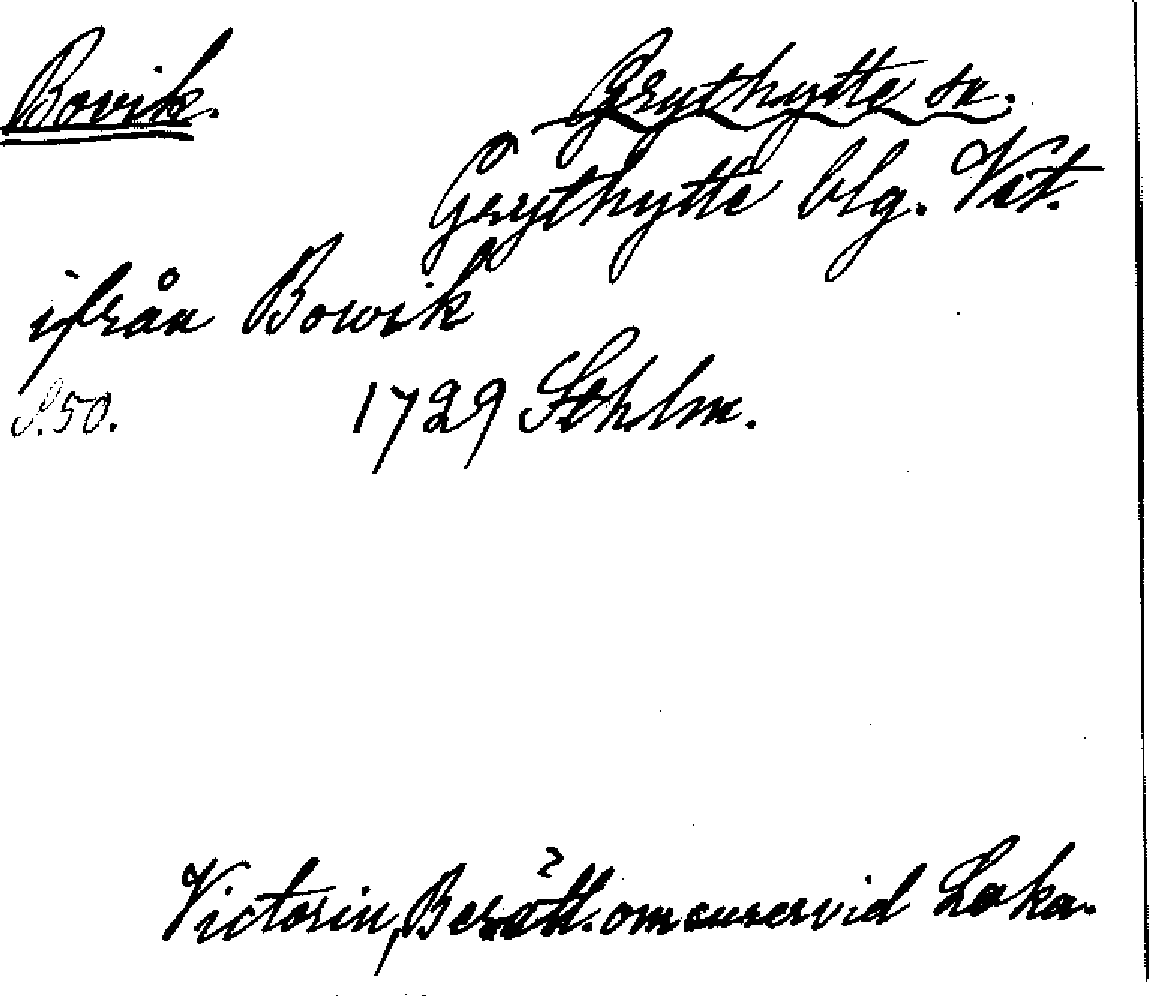 Bovik. Grythytte sn.
Grythytte blg. Vst.
ifrån Bowik
S. 50. 1729 Sthlm.
Victorin, Berätt. om curer vid Loka.